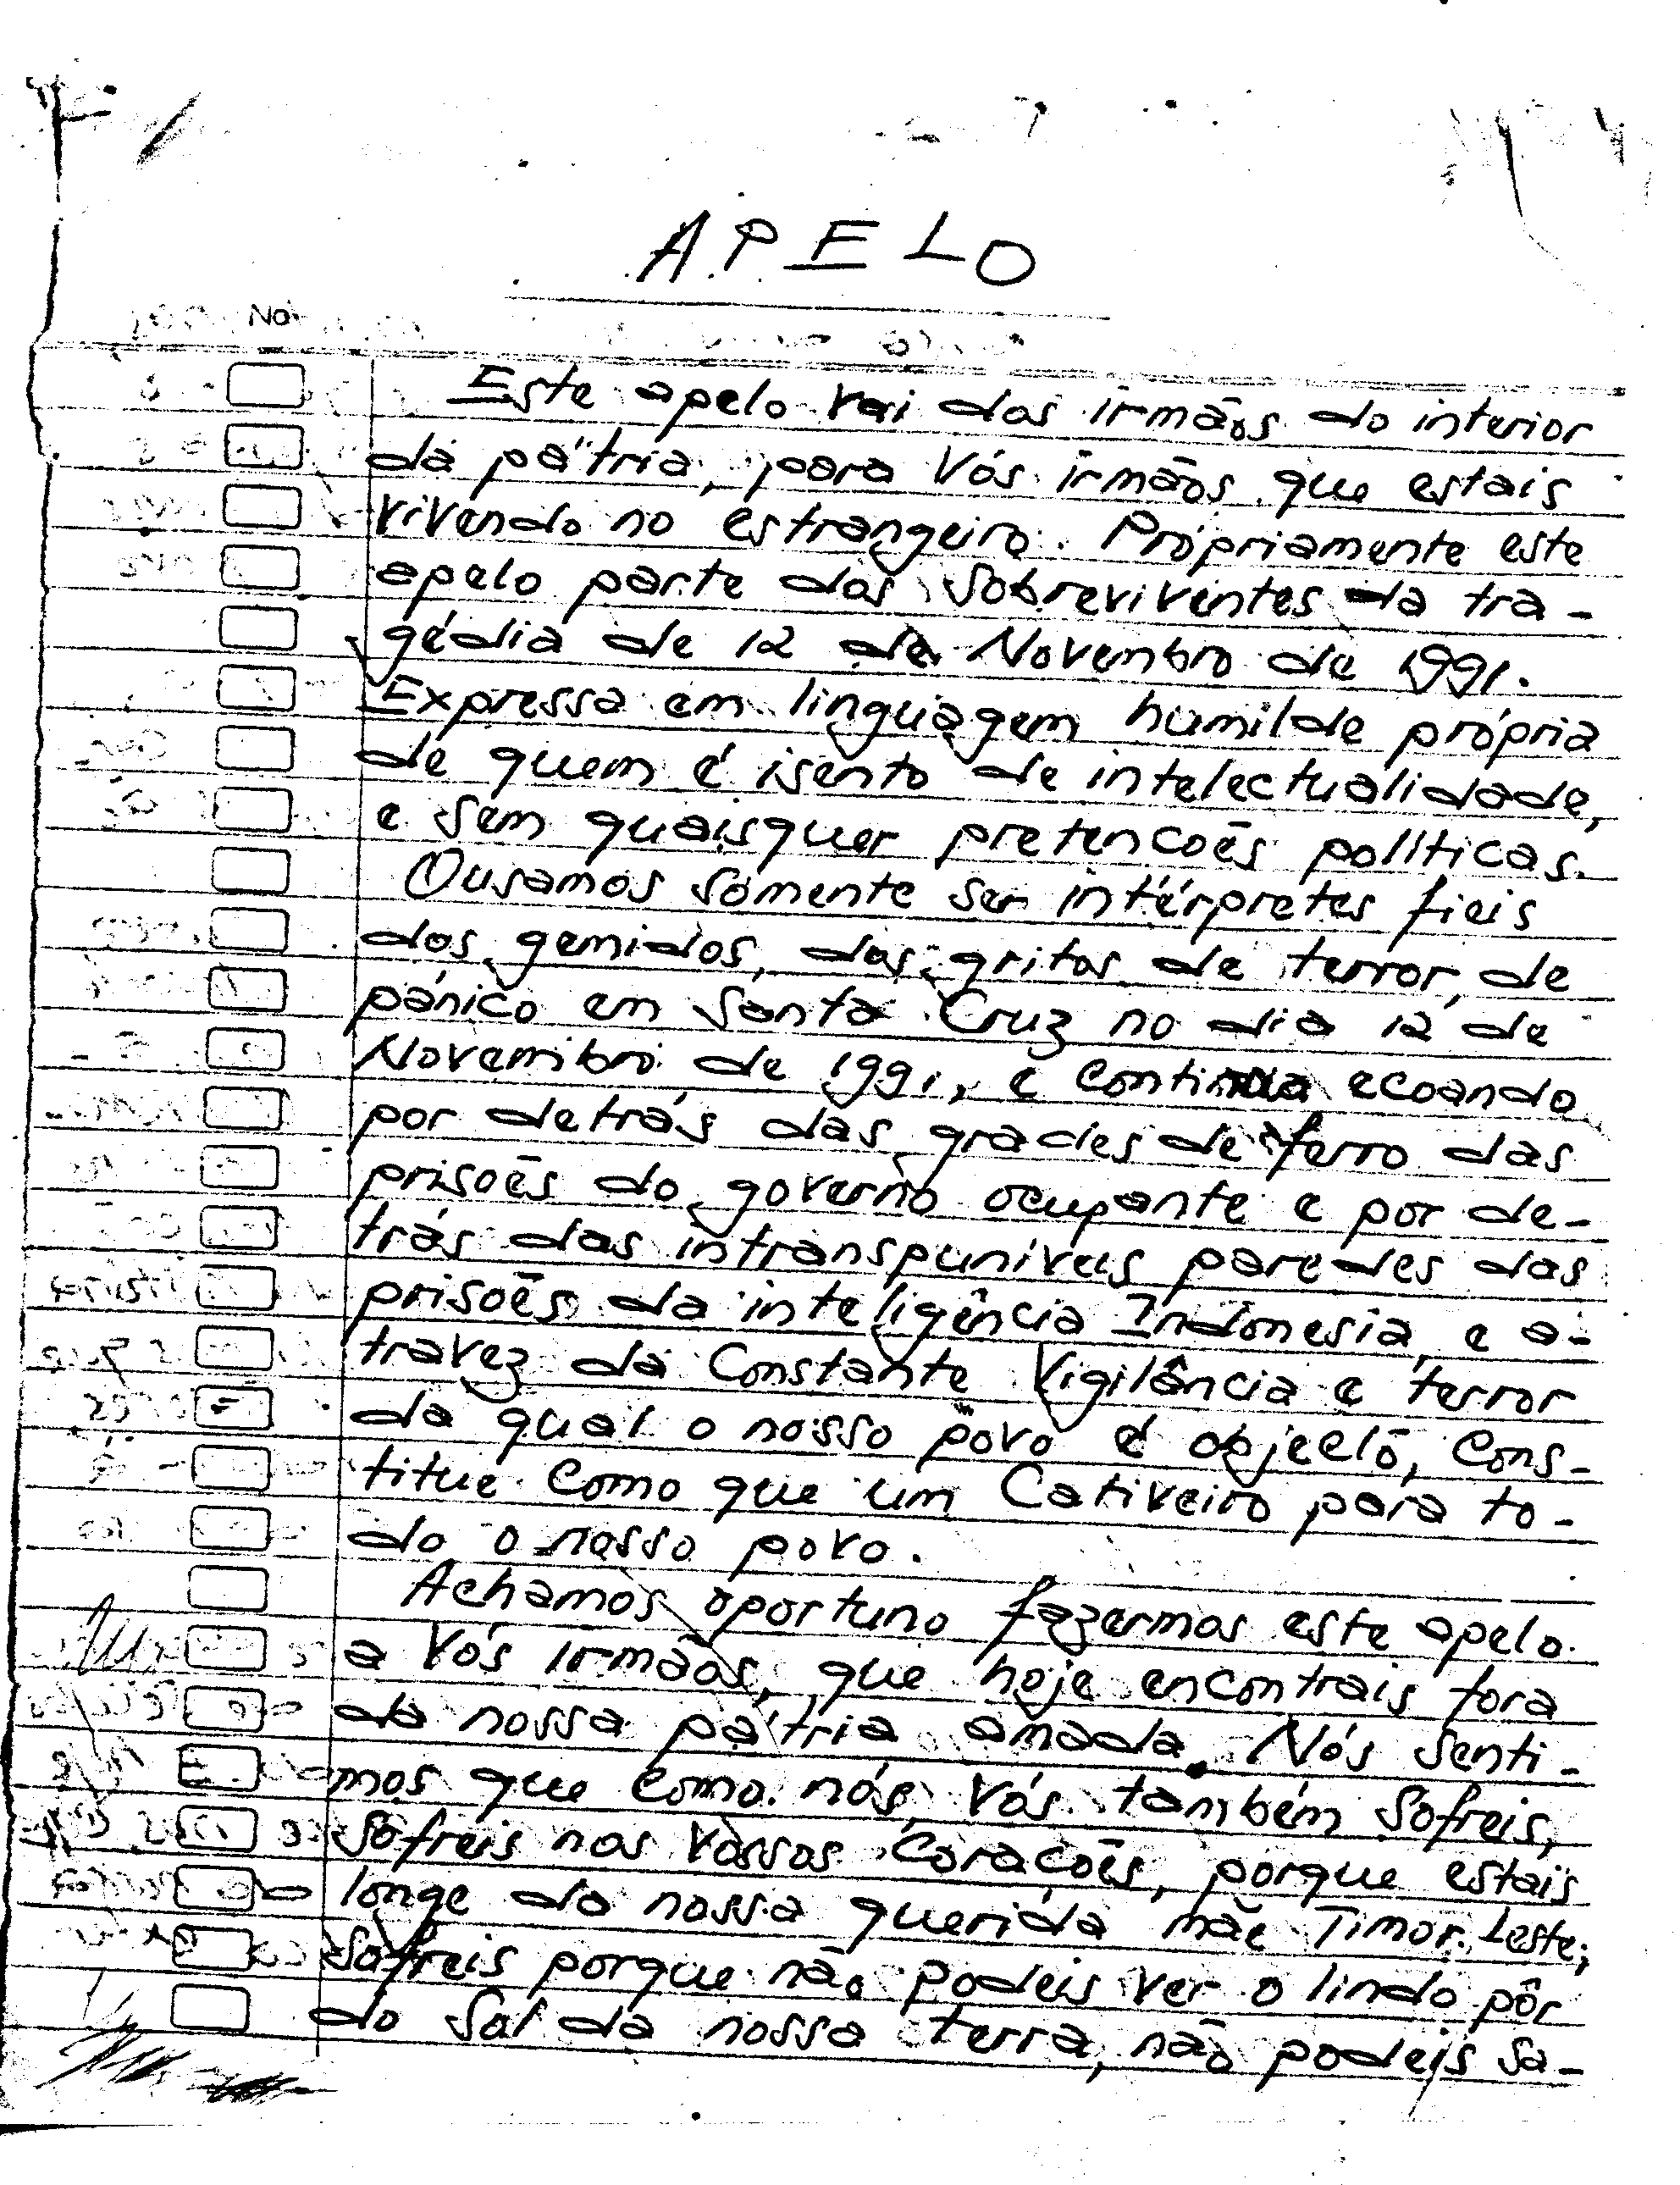 APELO
No
Este apelo vai dos irmãos do interior
da pátria, para Vós irmãos que estais
vivendo no estrangeiro. Própriamente este
apelo parte dos Sobreviventes da tra-
gédia de 12 de Novembro de 1991.
Expressa em linguagem humilde própria
de quem é isento de intelectualidade,
e sem quaisquer pretencoēs políticas.
Ousamos sómente ser intérpretes fieis
dos gemidos, dos gritos de terror, de
pánico em Santa Cruz no dia 12 de
Novembro de 1991, e continua ecoando
por detrás das grades de ferro das
prisoēs do governo ocupante e por de-
trás das intranspuníveis paredes das
prisoēs da inteligência Indonesia, e a-
travez da Constante Vigilância e terror
da qual o nosso povo é objecto, Cons-
titue Como que um Cativeiro para to-
do o nosso povo.
Achamos oportuno fazermos este apelo
a Vós irmãos, que hoje encontrais fora
da nossa pátria amada. Nós Senti-
mos que como nós, Vós também Sofreis,
Sofreis nos Vossos Coracoēs, porque estais
longe da nossa querida mãe Timor Leste;
Sofreis porque não podeis ver o lindo pôr
do Sol da nossa terra, não podeis sa-